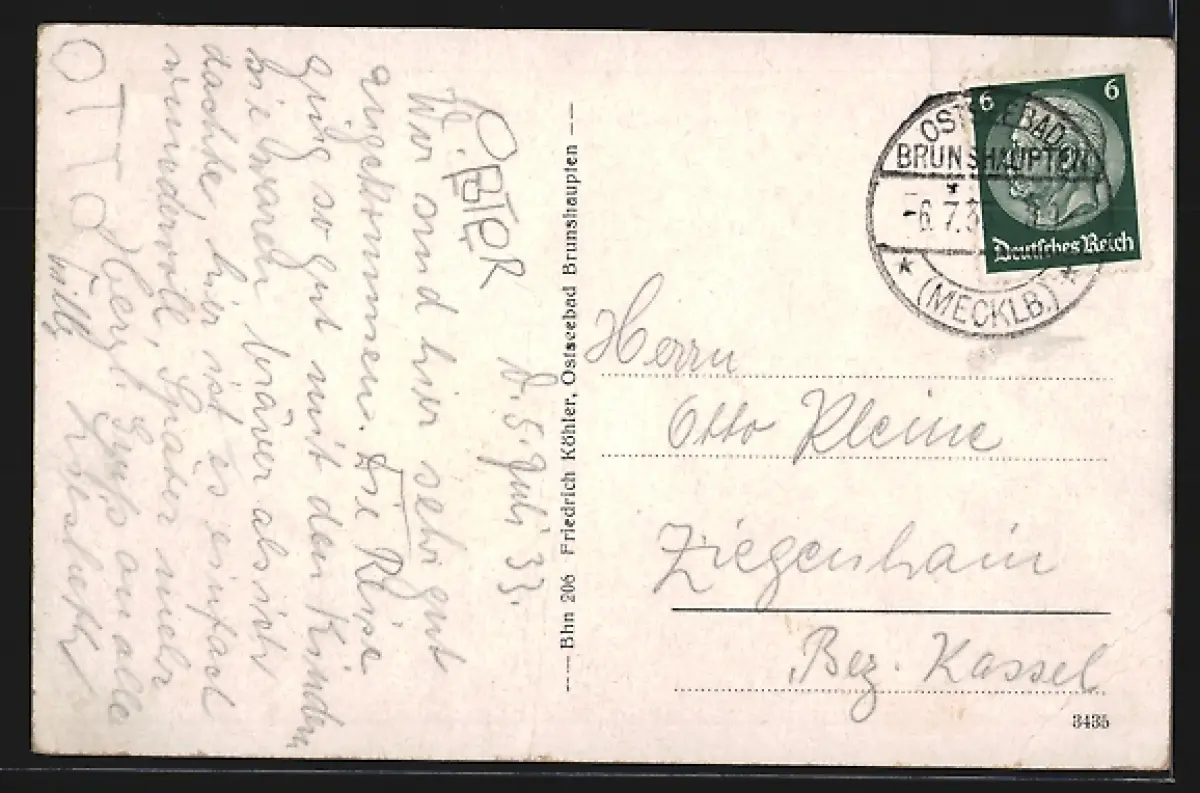 D. 5. Juli 33.
Wir sind hier sehr gut
angekommen. Die Reise
ging so gut mit den Kindern
sie waren bräver als ich
dachte, hier ist es einfach
wundervoll, Später mehr
Herzl. Gruß an alle
Willy
OTTO
Bhn 206 Friedrich Köhler, Ostseebad Brunshaupten
OSTSEEBAD
BRUNSHAUPTEN
-6.7.3
(MECKLB.)
6 6
Deutsches Reich
Herrn
Otto Kleine
Ziegenhain
Bez. Kassel
3435